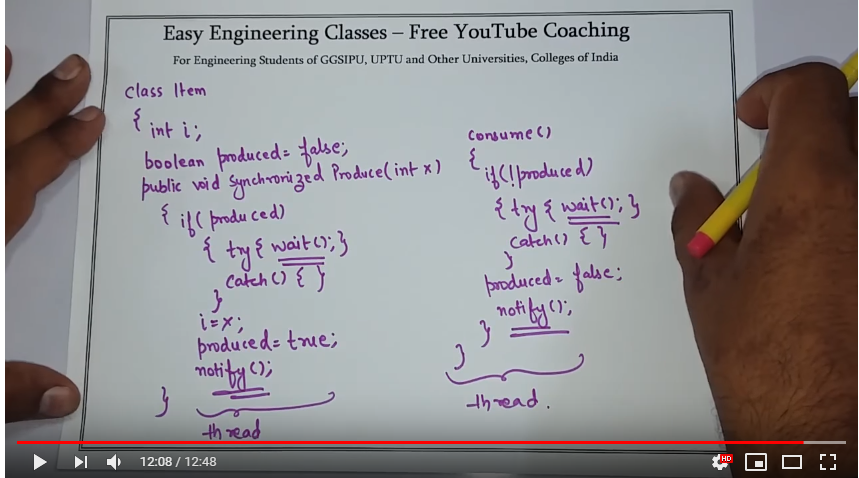 Easy Engineering Classes – Free YouTube Coaching
For Engineering Students of GGSIPU, UPTU and Other Universities, Colleges of India
Class Item
{
int i;
boolean produced = false;
public void synchronized Produce(int x)
{ if(produced)
{ try { wait(); }
catch() { }
}
i=x;
produced = true;
notify();
}
thread
Consume()
{
if(!produced)
{ try { wait(); }
catch() { }
}
produced = false;
notify();
}
}
thread.
12:08 / 12:48
HD